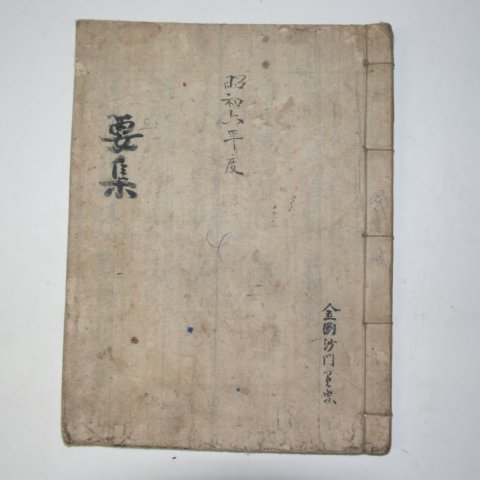 昭和六年度
要集
金剛沙門